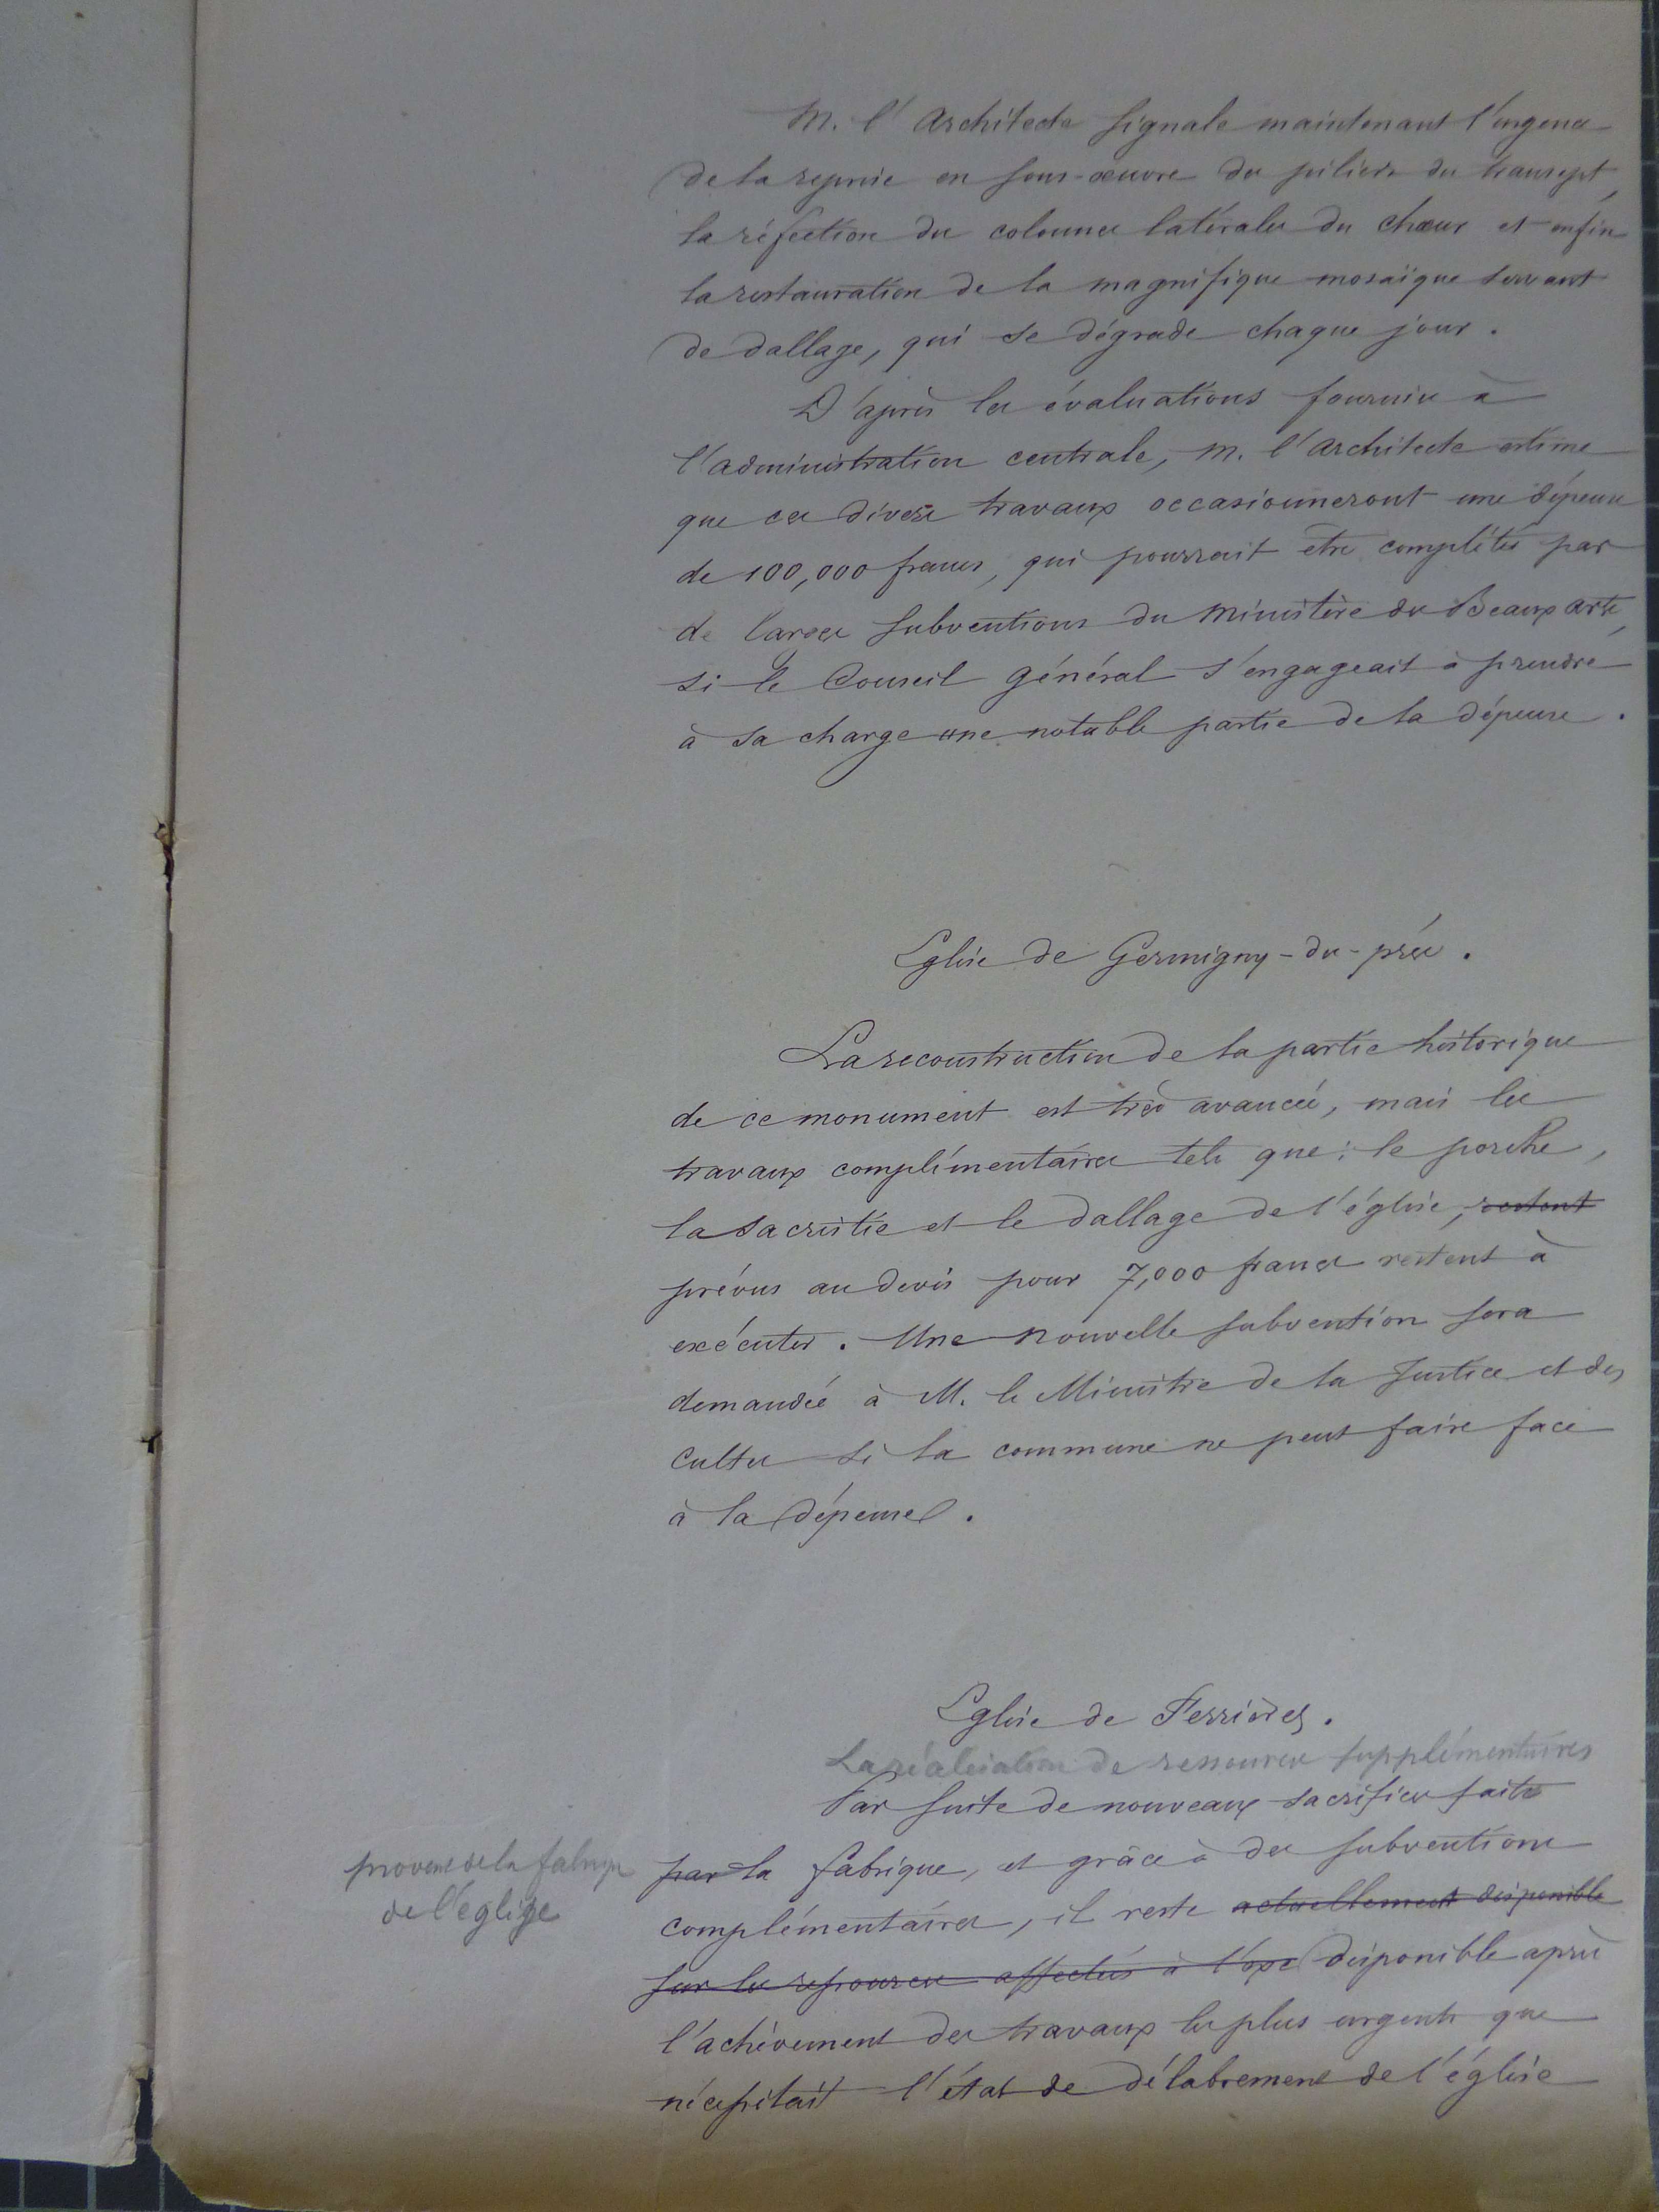 M. l'Architecte signale maintenant l'urgence
de la reprise en sous-œuvre des piliers du transept,
la réfection des colonnes latérales du chœur et enfin
la restauration de la magnifique mosaïque servant
de dallage, qui se dégrade chaque jour.
D'après les évaluations fournies à
l'administration centrale, M. l'Architecte estime
que ces divers travaux occasionneront une dépense
de 100,000 francs, qui pourrait être complétés par
de larges subventions du Ministère des Beaux arts,
si le Conseil Général s'engageait à prendre
à sa charge une notable partie de la dépense.
Eglise de Germigny-des-prés.
La reconstruction de la partie historique
de ce monument est très avancée, mais les
travaux complémentaires tels que : le porche,
la sacristie et le dallage de l'église, restent
prévus au devis pour 7,000 francs restent à
exécuter. Une nouvelle subvention sera
demandée à M. le Ministre de la Justice et des
Cultes si la commune ne peut faire face
à la dépense.
Eglise de Ferrières.
La réalisation de ressources supplémentaires
Par suite de nouveaux sacrifices faits
provenant de la fabrique
de l'eglise
par la fabrique, et grâce à des subventions
complémentaires, il reste actuellement disponible
sur les ressources affectées à l'opé disponible après
l'achèvement des travaux les plus urgents que
nécessitait l'état de délabrement de l'église